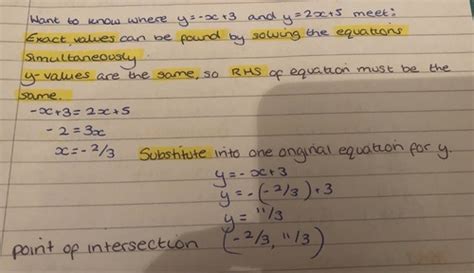 Want to know where y=-x+3 and y=2x+5 meet:
Exact values can be found by solving the equations
simultaneously.
y-values are the same, so RHS of equation must be the
same.
-x+3 = 2x+5
-2 = 3x
x = -2/3 Substitute into one original equation for y.
y = -x+3
y = -(-2/3)+3
y = 11/3
point of intersection (-2/3, 11/3)